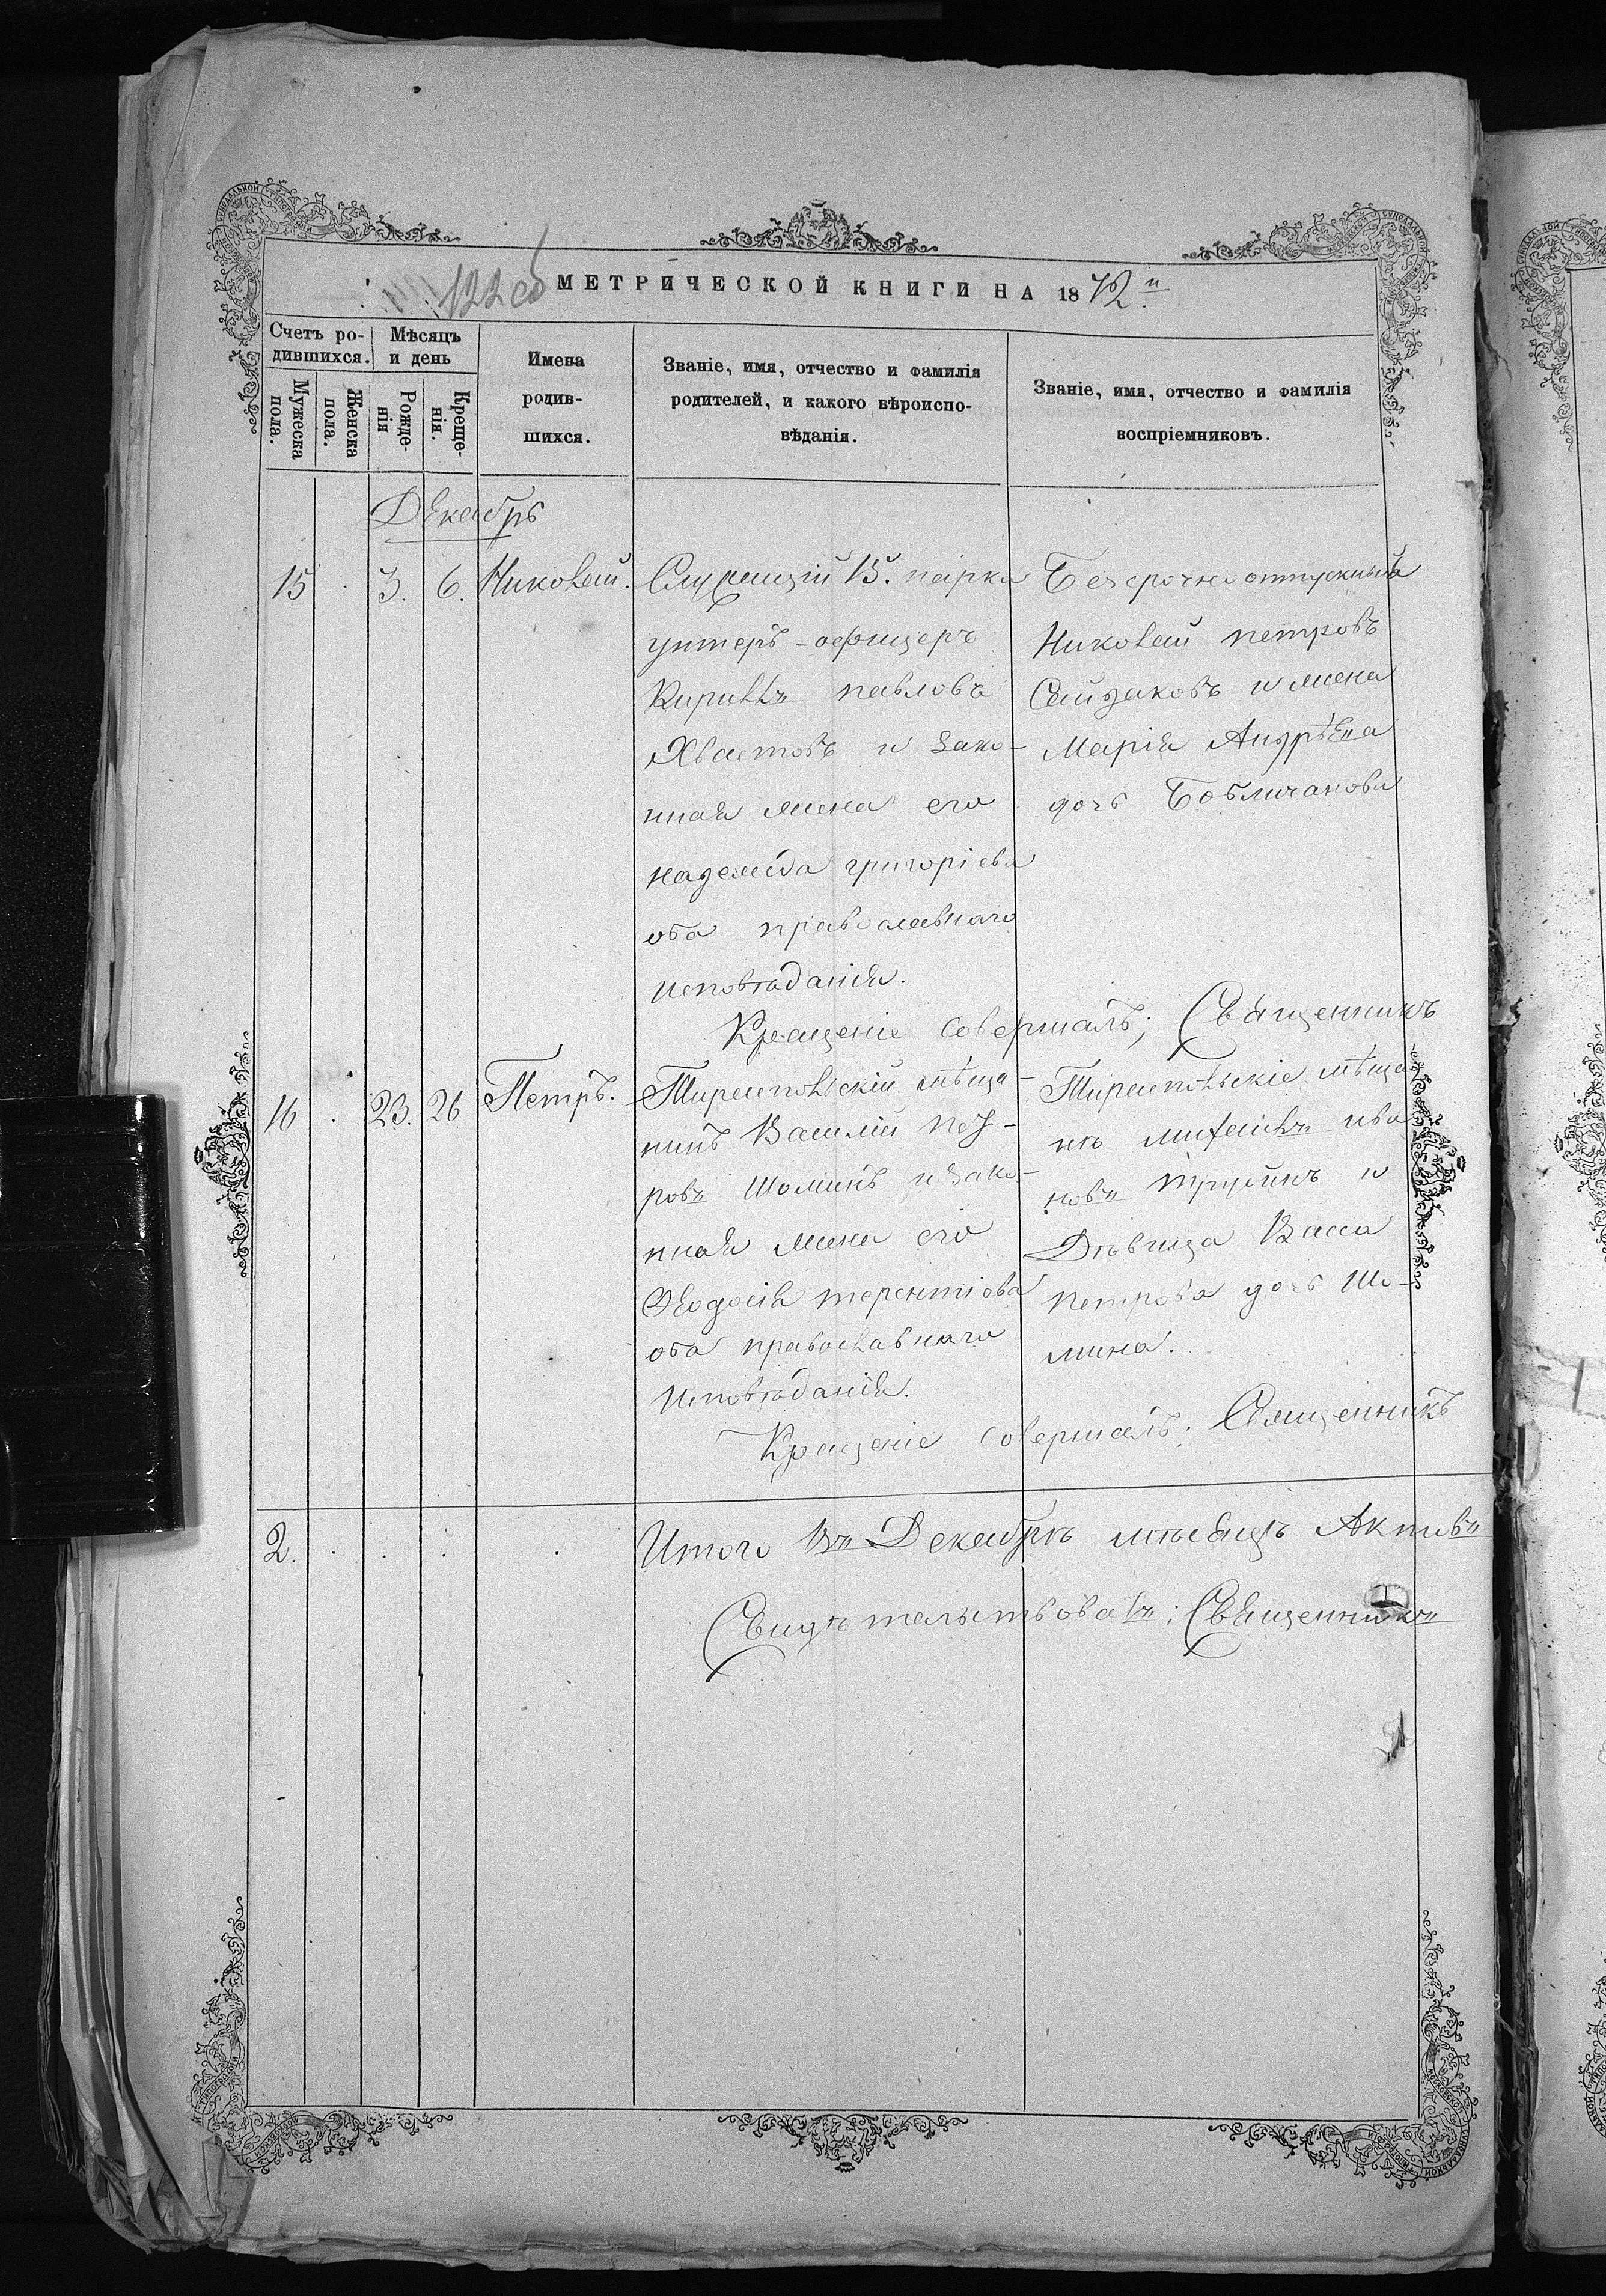 122 об
МЕТРИЧЕСКОЙ КНИГИ НА 1872 й
Счетъ ро-
дившихся.
Мужеска
пола.
Женска
пола.
Мѣсяцъ
и день
Рожде-
нія
Креще-
нія.
Имена
родив-
шихся.
Званіе, имя, отчество и фамилія
родителей, и какого вѣроиспо-
вѣданія.
Званіе, имя, отчество и фамилія
воспріемниковъ.
Декабрь
15 3. 6. Николай.
Служащій 15. парка
унтеръ-офицеръ
Кириллъ павловъ
Хвастовъ и зако-
нная жена его
надежда григоріева
оба православнаго
исповѣданія.
Безсрочно отпускный
Николай петровъ
Сайдаковъ и жена
Марія Андрѣева
дочь
Крещеніе совершалъ; Священникъ
16 23. 26 Петръ.
Тираспольскій мѣща-
нинъ Василій
ровъ Шоминъ и зако-
нная жена его
Ѳеодосія терентіева
оба православнаго
Исповѣданія.
Тираспольскіе мѣща
нѣ михаилъ ива
новъ и
Дѣвица Васса
петрова дочь Шо-
мина.
Крещеніе совершалъ; Священникъ
2. Итого въ Декабрѣ мѣсяцѣ Актовъ
Свидѣтельствовалъ; Священникъ